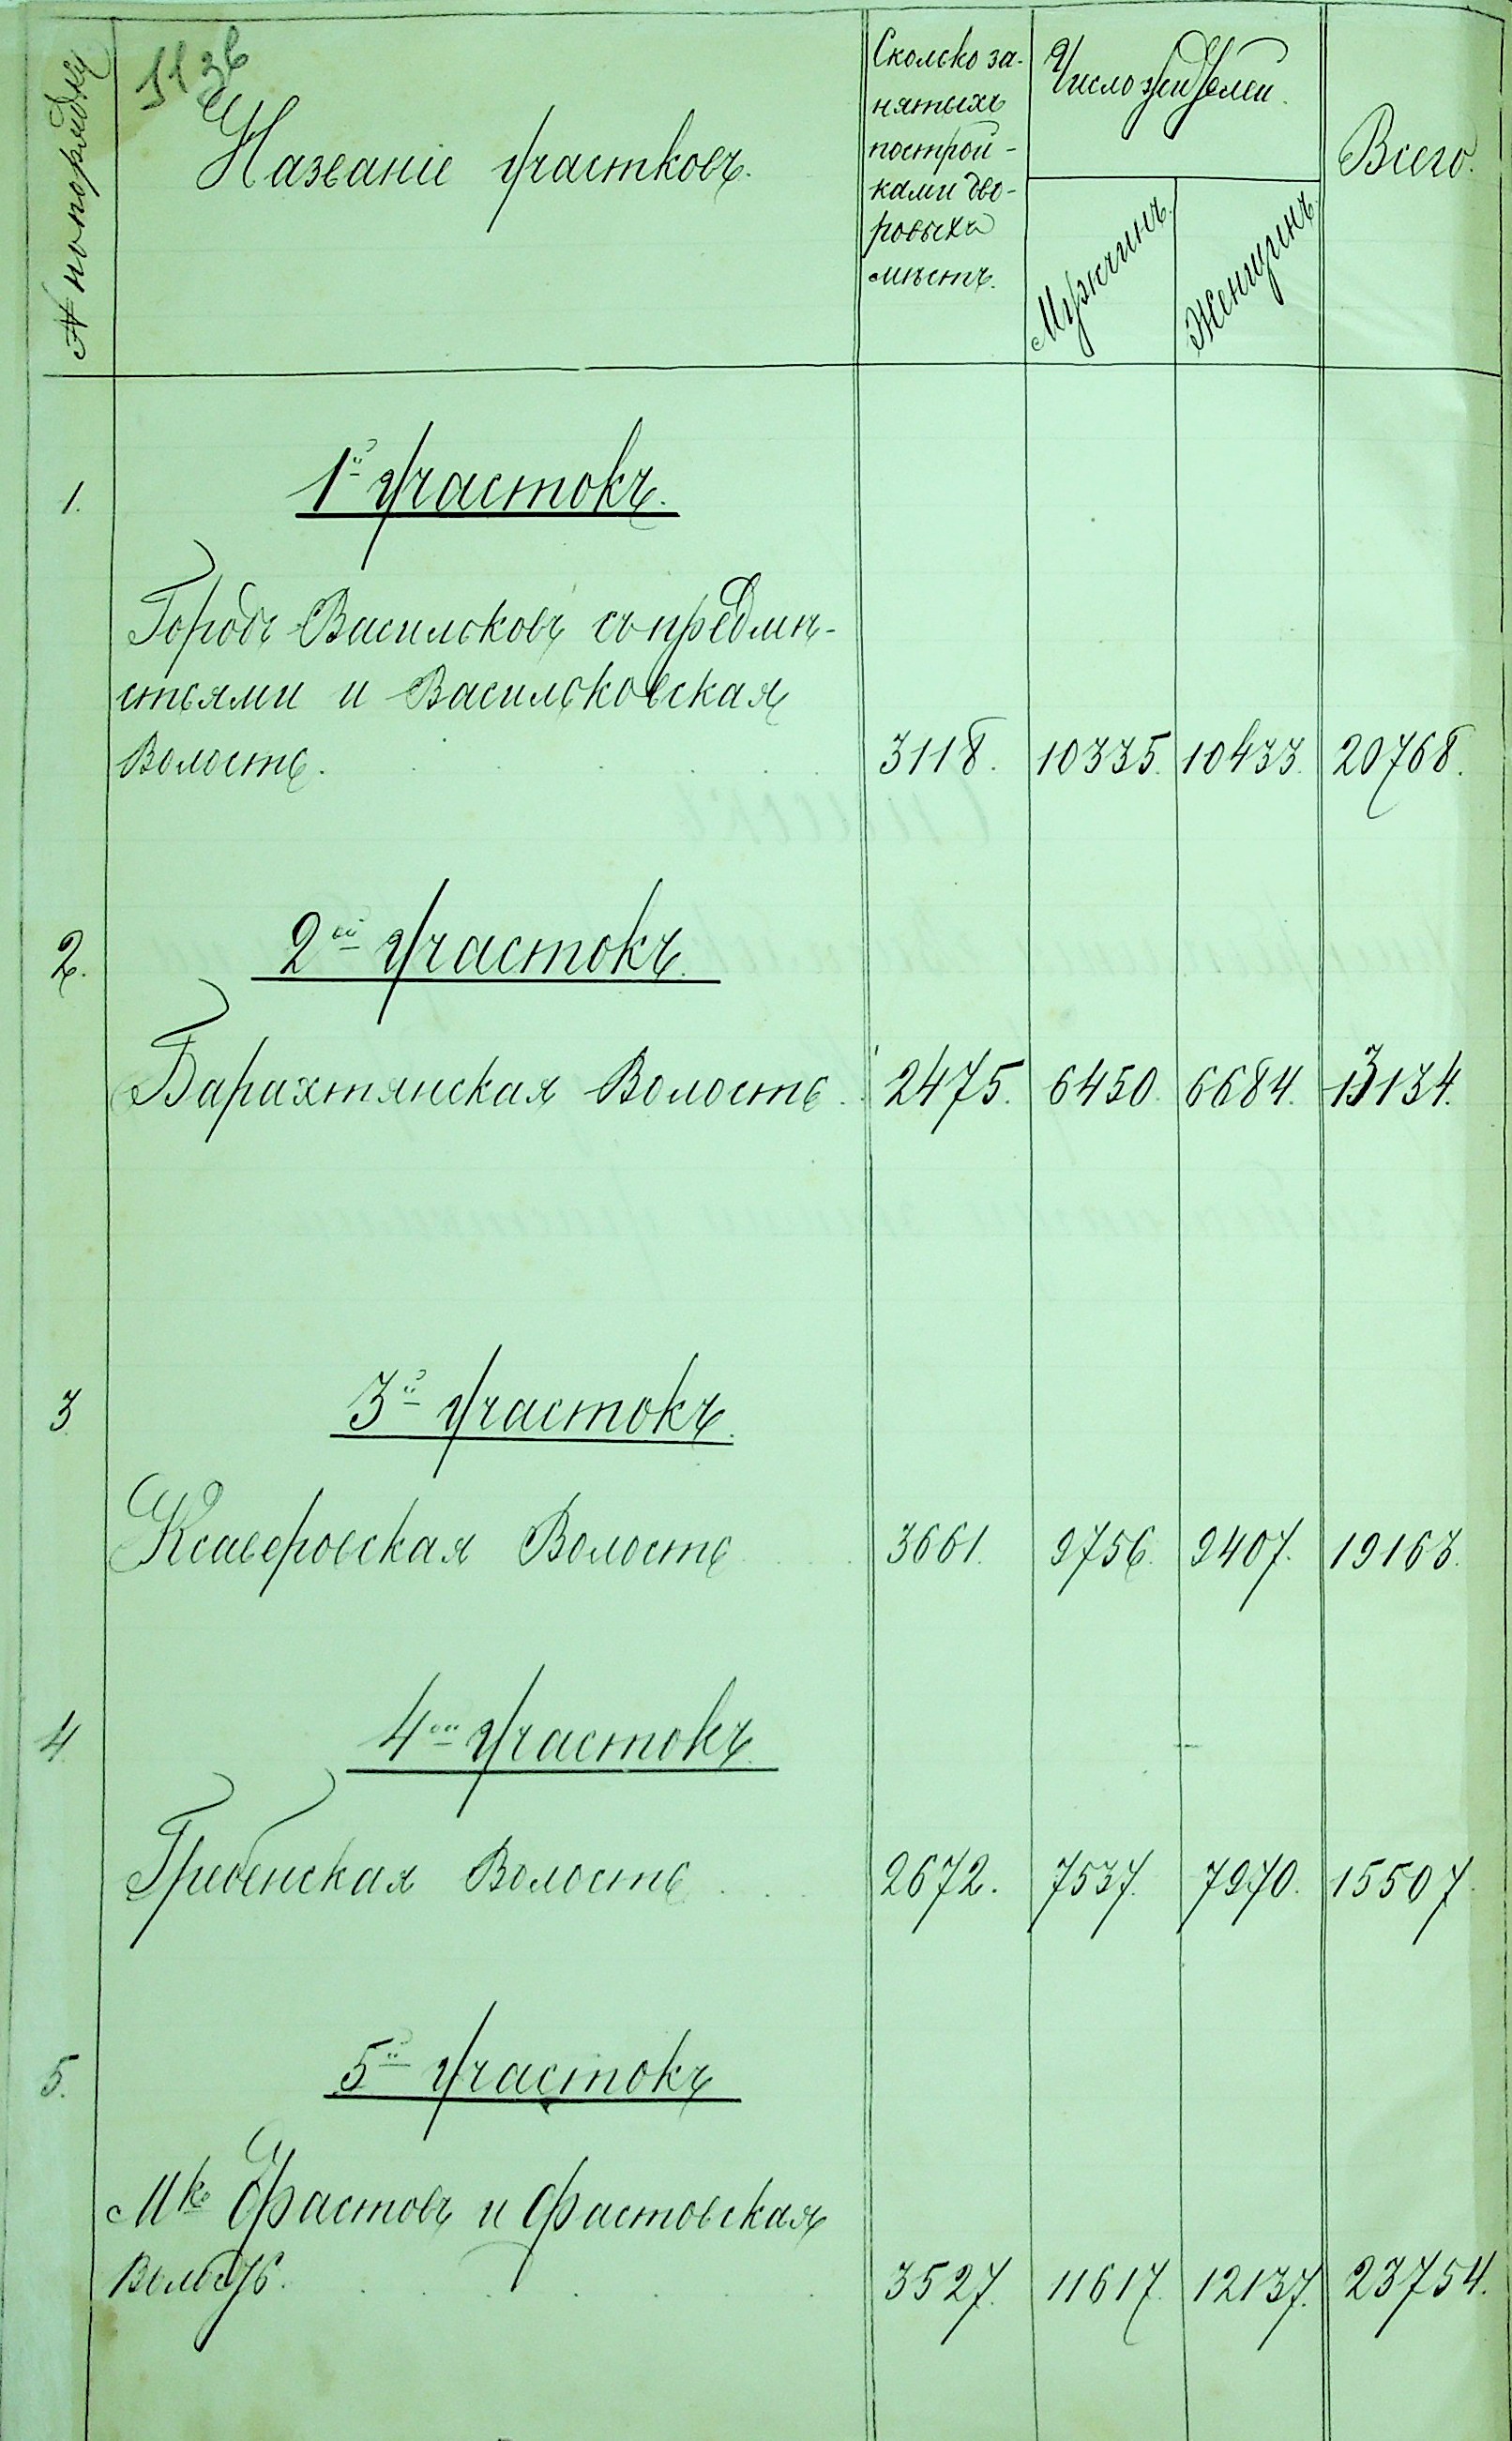 № по порядку
Названіе участковъ.
Сколько за-
нятыхъ
построй-
ками дво-
ровыхъ
мѣстъ.
Число жителей.
Мужчинъ.
Женщинъ.
Всего.
1. 1й участокъ.
Городъ Васильковъ съ предмѣ-
стьями и Васильковская
Волость. 3118. 10335. 10433. 20768.
2. 2й участокъ.
Барахтянская Волость. 2475. 6450. 6684. 13134.
3 3й участокъ.
Ксаверовская Волость 3661. 9756. 9407. 19163.
4. 4й участокъ.
Гребенская Волость 2672. 7537. 7970. 15507.
5. 5й участокъ
Мко Фастовъ и Фастовская
Волость. 3527. 11617. 12137. 23754.